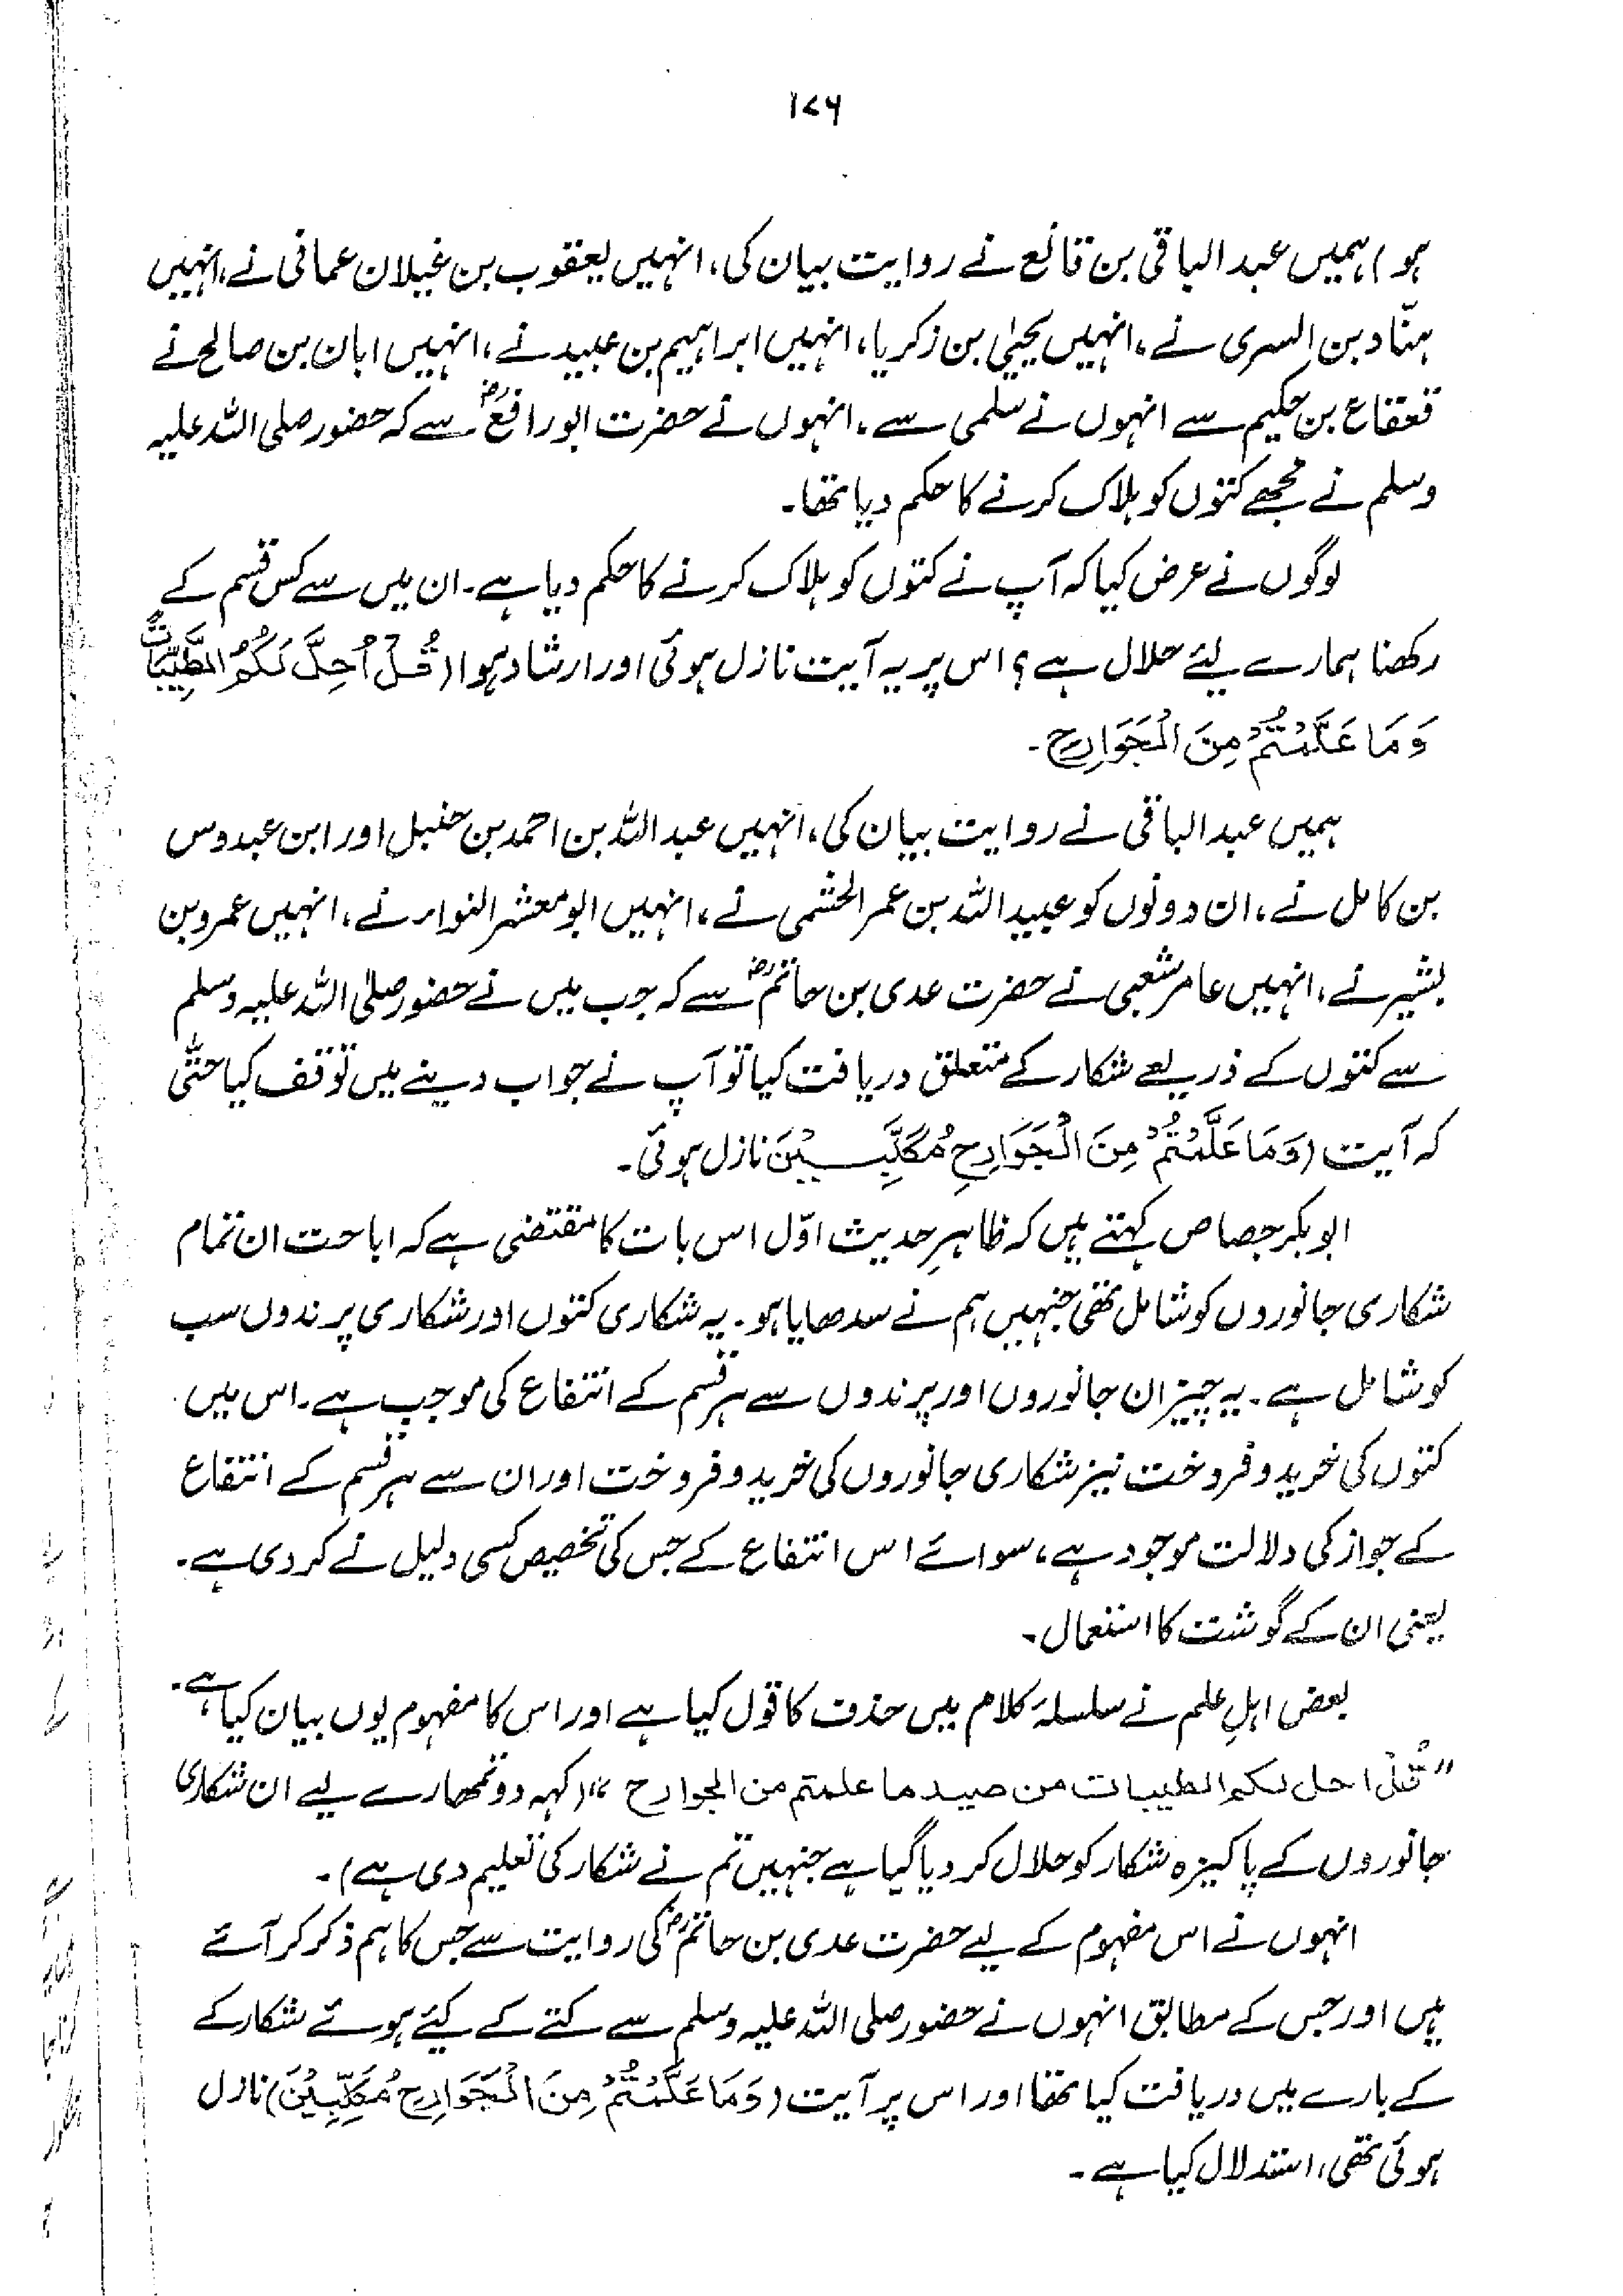 ۱۷۶
ہو) ہمیں عبد الباقی بن قانع نے روایت بیان کی، انہیں یعقوب بن غیلان عمانی نے، انہیں
ہنّاد بن السری نے، انہیں یحییٰ بن زکریا، انہیں ابراہیم بن عبید نے، انہیں ابان بن صالح نے
قعقاع بن حکیم سے انہوں نے سلمی سے، انہوں نے حضرت ابو رافعؓ سے کہ حضور صلی اللہ علیہ
وسلم نے مجھے کتوں کو ہلاک کرنے کا حکم دیا تھا۔
لوگوں نے عرض کیا کہ آپ نے کتوں کو ہلاک کرنے کا حکم دیا ہے۔ ان میں سے کس قسم کے
رکھنا ہمارے لئے حلال ہے؟ اس پر یہ آیت نازل ہوئی اور ارشاد ہوا (قُلْ أُحِلَّ لَكُمُ الطَّيِّبَاتُ
وَمَا عَلَّمْتُمْ مِنَ الْجَوَارِحِ۔
ہمیں عبد الباقی نے روایت بیان کی، انہیں عبد اللہ بن احمد بن حنبل اور ابن عبدوس
بن کامل نے، ان دونوں کو عبید اللہ بن عمر الخشمی نے، انہیں ابو معشر النواء نے، انہیں عمرو بن
بشیر نے، انہیں عامر شعبی نے حضرت عدی بن حاتمؓ سے کہ جب میں نے حضور صلی اللہ علیہ وسلم
سے کتوں کے ذریعے شکار کے متعلق دریافت کیا تو آپ نے جواب دینے میں توقف کیا حتّٰی
کہ آیت (وَمَا عَلَّمْتُمْ مِنَ الْجَوَارِحِ مُكَلِّبِيْنَ نازل ہوئی۔
ابو بکر جصاص کہتے ہیں کہ ظاہرِ حدیث اوّل اس بات کا مقتضی ہے کہ اباحت ان تمام
شکاری جانوروں کو شامل تھی جنہیں ہم نے سدھایا ہو۔ یہ شکاری کتوں اور شکاری پرندوں سب
کو شامل ہے۔ یہ چیز ان جانوروں اور پرندوں سے ہر قسم کے انتفاع کی موجب ہے۔ اس میں
کتوں کی خرید و فروخت نیز شکاری جانوروں کی خرید و فروخت اور ان سے ہر قسم کے انتفاع
کے جواز کی دلالت موجود ہے، سوائے اس انتفاع کے جس کی تخصیص کسی دلیل نے کر دی ہے۔
یعنی ان کے گوشت کا استعمال۔
بعض اہلِ علم نے سلسلۂ کلام میں حذف کا قول کیا ہے اور اس کا مفہوم یوں بیان کیا ہے۔
"قُلْ احل لكم الطيبات من صيد ما علمتم من الجوارح" (کہہ دو تمھارے لیے ان شکاری
جانوروں کے پاکیزہ شکار کو حلال کر دیا گیا ہے جنہیں تم نے شکار کی تعلیم دی ہے)۔
انہوں نے اس مفہوم کے لیے حضرت عدی بن حاتمؓ کی روایت سے جس کا ہم ذکر کر آئے
ہیں اور جس کے مطابق انہوں نے حضور صلی اللہ علیہ وسلم سے کتے کے کیئے ہوئے شکار کے
کے بارے میں دریافت کیا تھا اور اس پر آیت (وَمَا عَلَّمْتُمْ مِنَ الْجَوَارِحِ مُكَلِّبِيْنَ) نازل
ہوئی تھی، استدلال کیا ہے۔